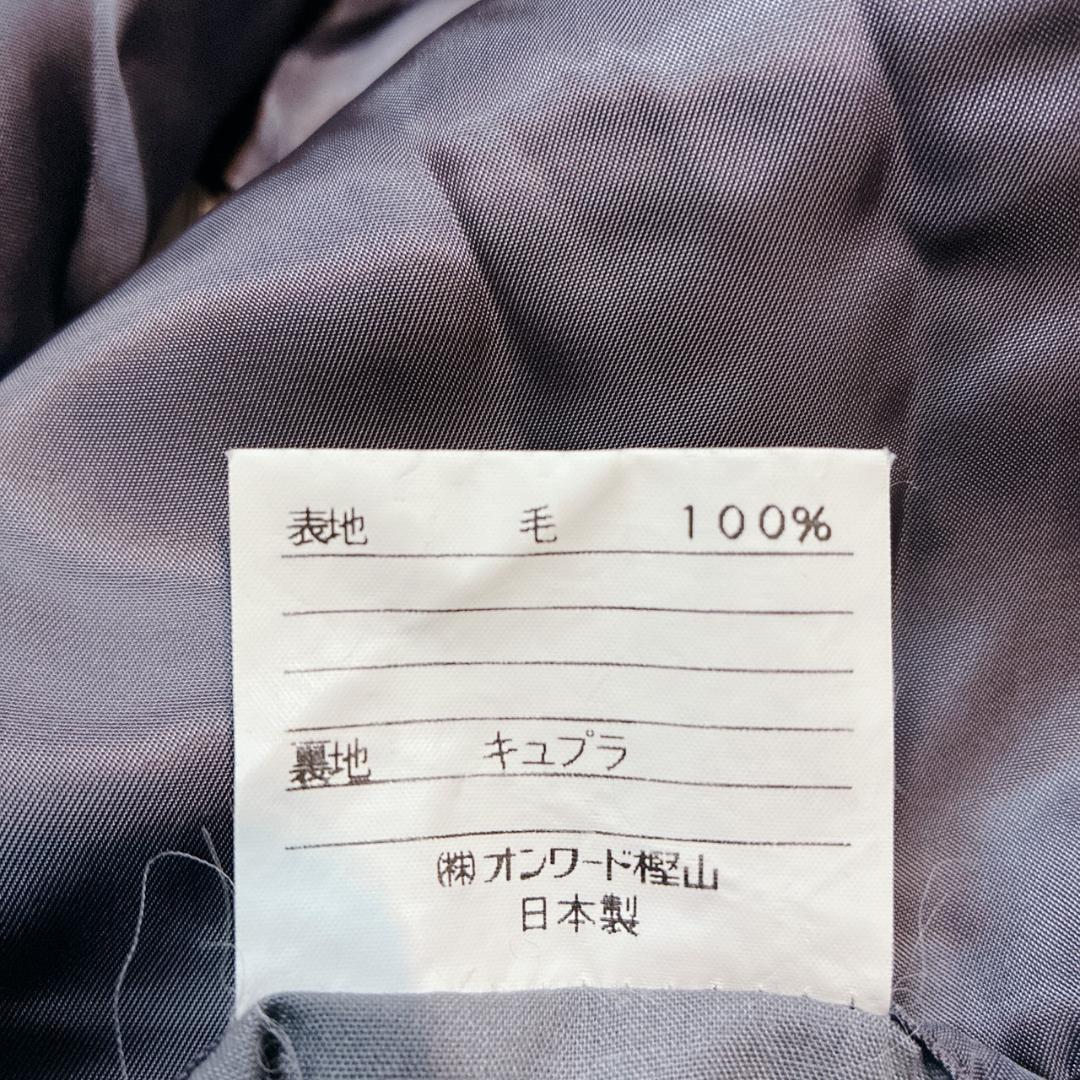 表地 毛 100%
裏地 キュプラ
㈱オンワード樫山
日本製